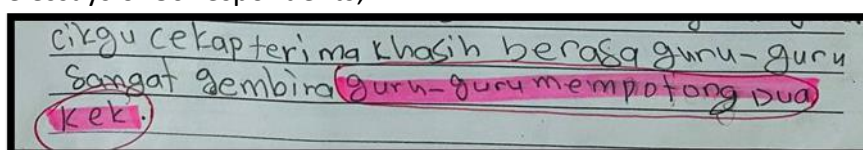 cikgu cekap terima khasih berasa guru-guru
sangat gembira guru-guru mempotong dua
kek.